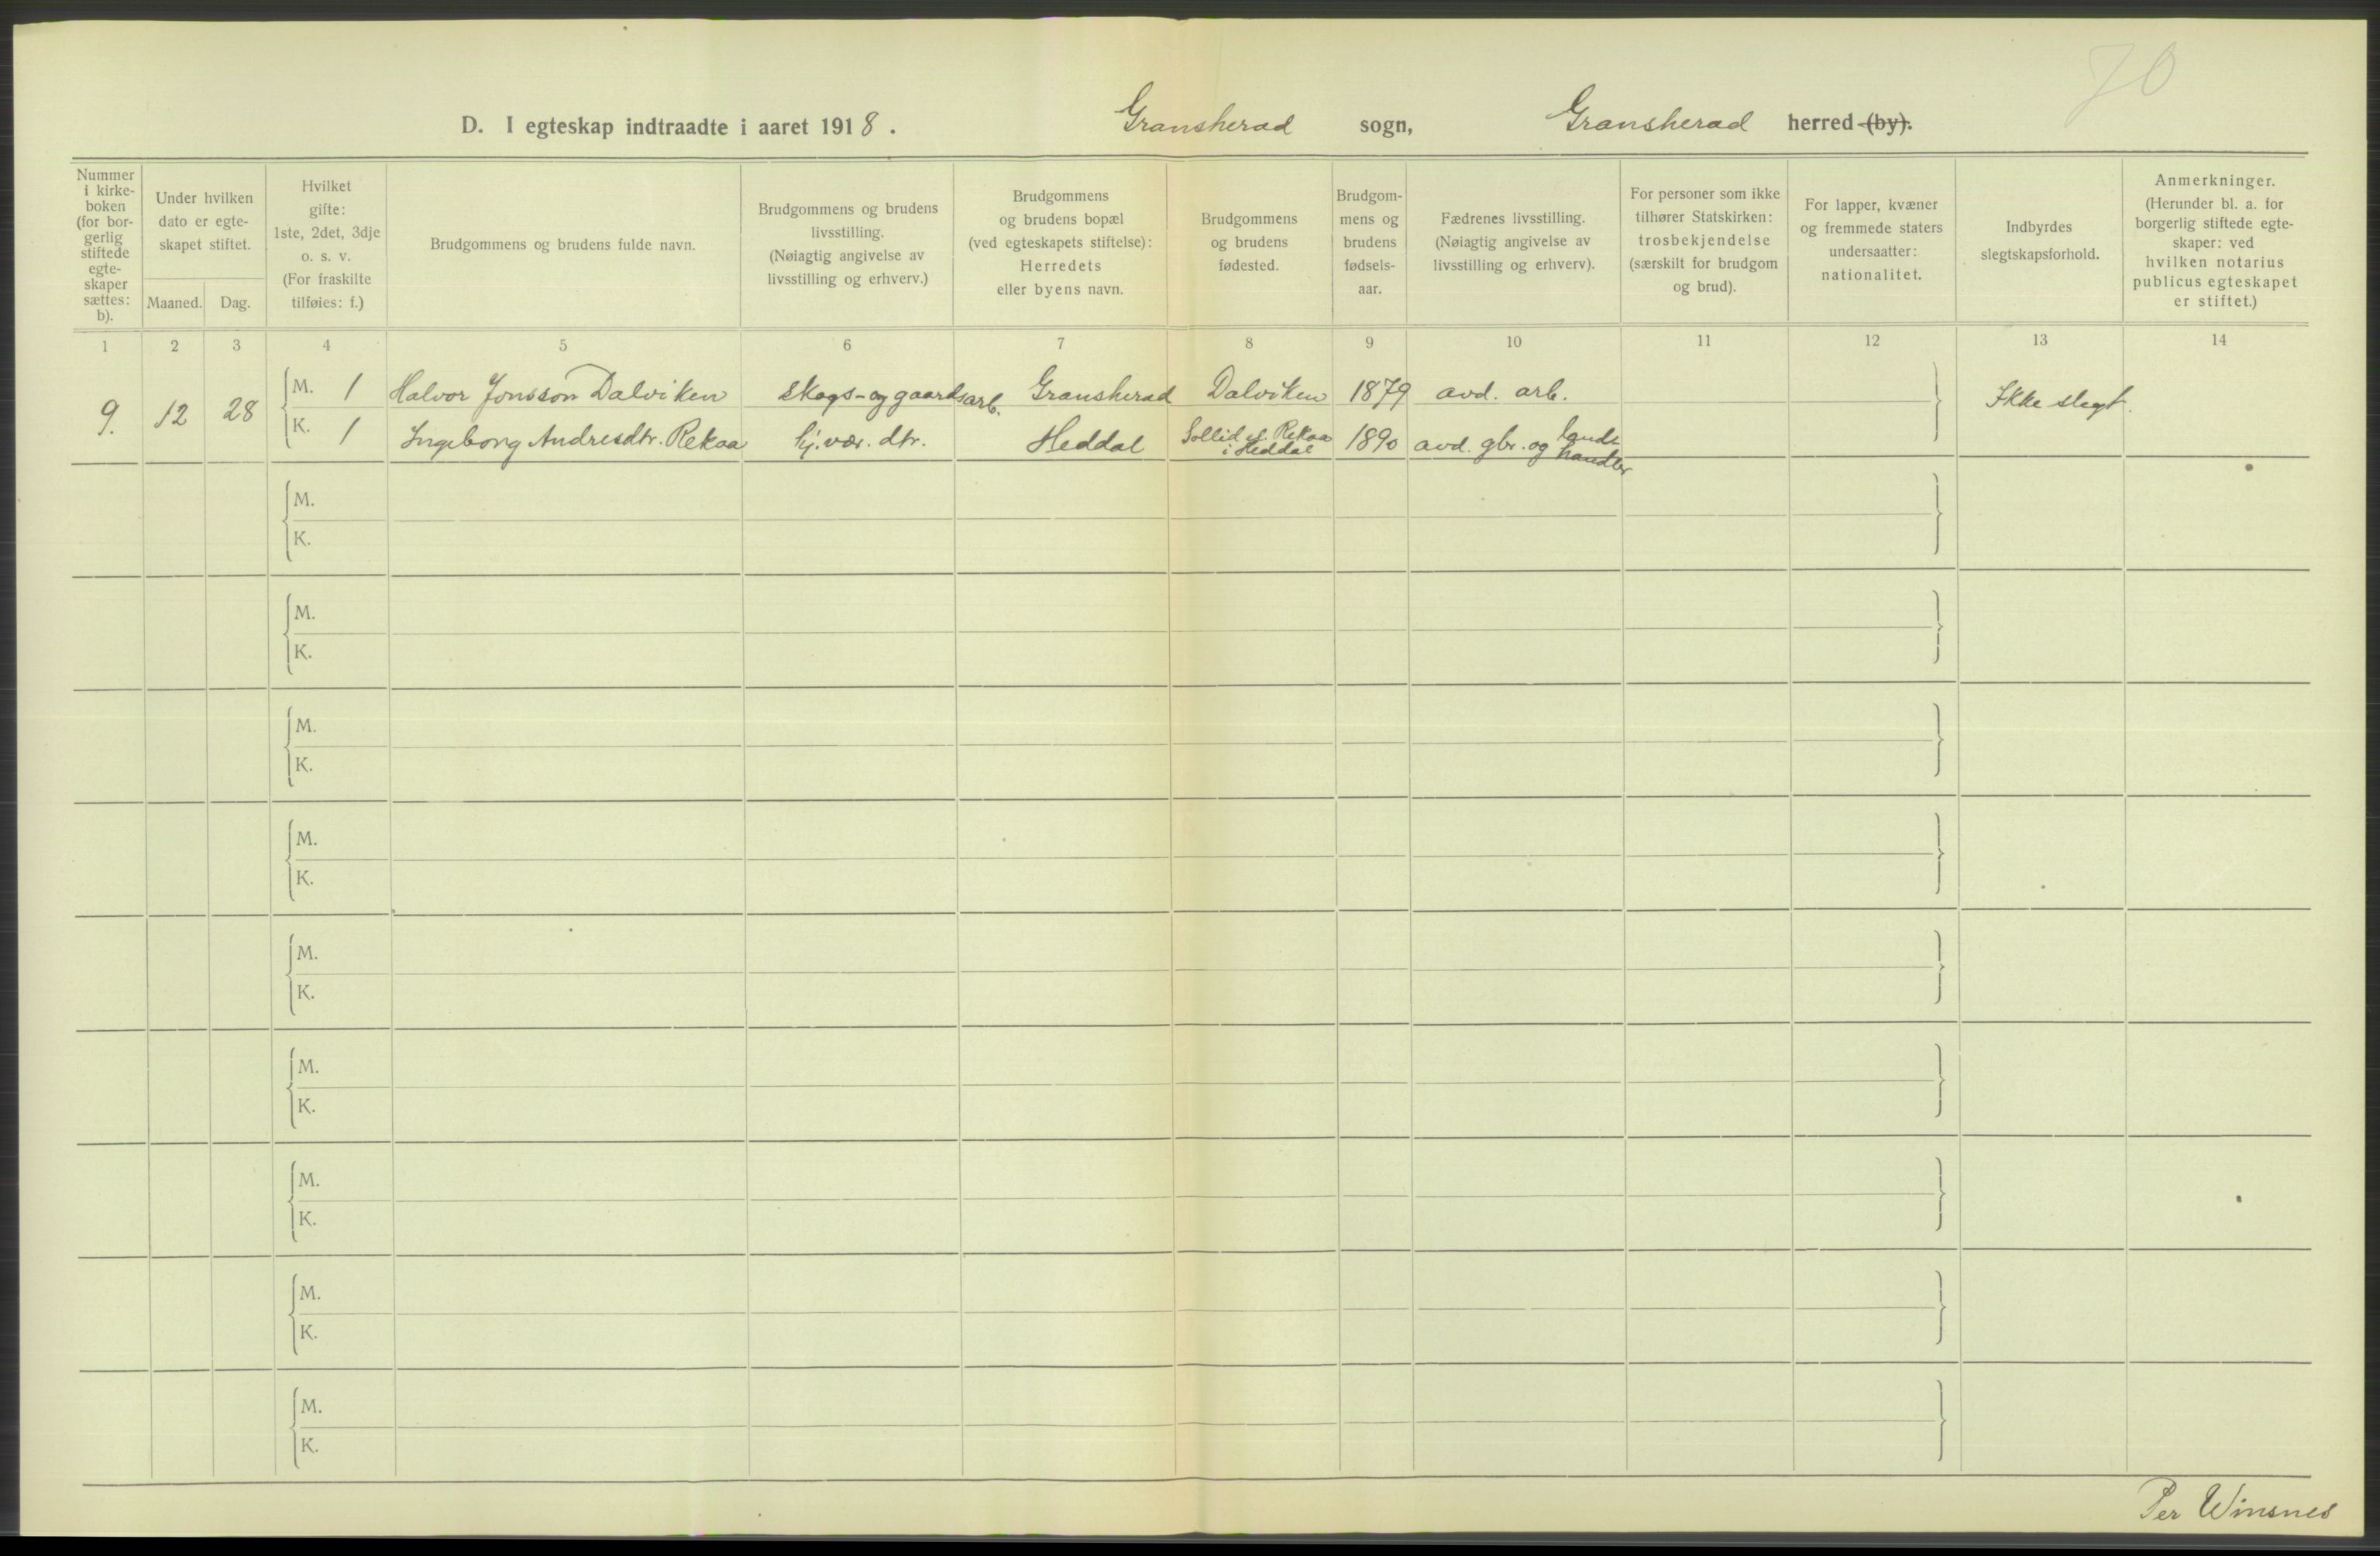 70
D. I egteskap indtraadte i aaret 1918. Gransherad sogn, Gransherad herred (by).
Nummer i kirke-boken (for bor-gerlig stiftede egte-skaper sættes: b).
Under hvilken dato er egte-skapet stiftet.
Maaned. Dag.
Hvilket gifte: 1ste, 2det, 3dje o. s. v. (For fraskilte tilføies: f.)
Brudgommens og brudens fulde navn.
Brudgommens og brudens livsstilling. (Nøiagtig angivelse av livsstilling og erhverv.)
Brudgommens og brudens bopæl (ved egteskapets stiftelse): Herredets eller byens navn.
Brudgommens og brudens fødested.
Brudgom-mens og brudens fødsels-aar.
Fædrenes livsstilling. (Nøiagtig angivelse av livsstilling og erhverv).
For personer som ikke tilhører Statskirken: trosbekjendelse (særskilt for brudgom og brud).
For lapper, kvæner og fremmede staters undersaatter: nationalitet.
Indbyrdes slegtskapsforhold.
Anmerkninger. (Herunder bl. a. for borgerlig stiftede egte-skaper: ved hvilken notarius publicus egteskapet er stiftet.)
1 2 3 4 5 6 7 8 9 10 11 12 13 14
9. 12 28 M. 1 Halvor Jonsson Dalviken skogs- og gaardsarb. Gransherad Dalviken 1879 avd. arb. Ikke slegt.
K. 1 Ingeborg Andresdtr. Rekaa hj. vær. dtr. Heddal Sollid u. Rekaa i Heddal 1890 avd. gbr. og landhandler
M.
K.
M.
K.
M.
K.
M.
K.
M.
K.
M.
K.
M.
K.
M.
K.
M.
K.
Per Winsnes